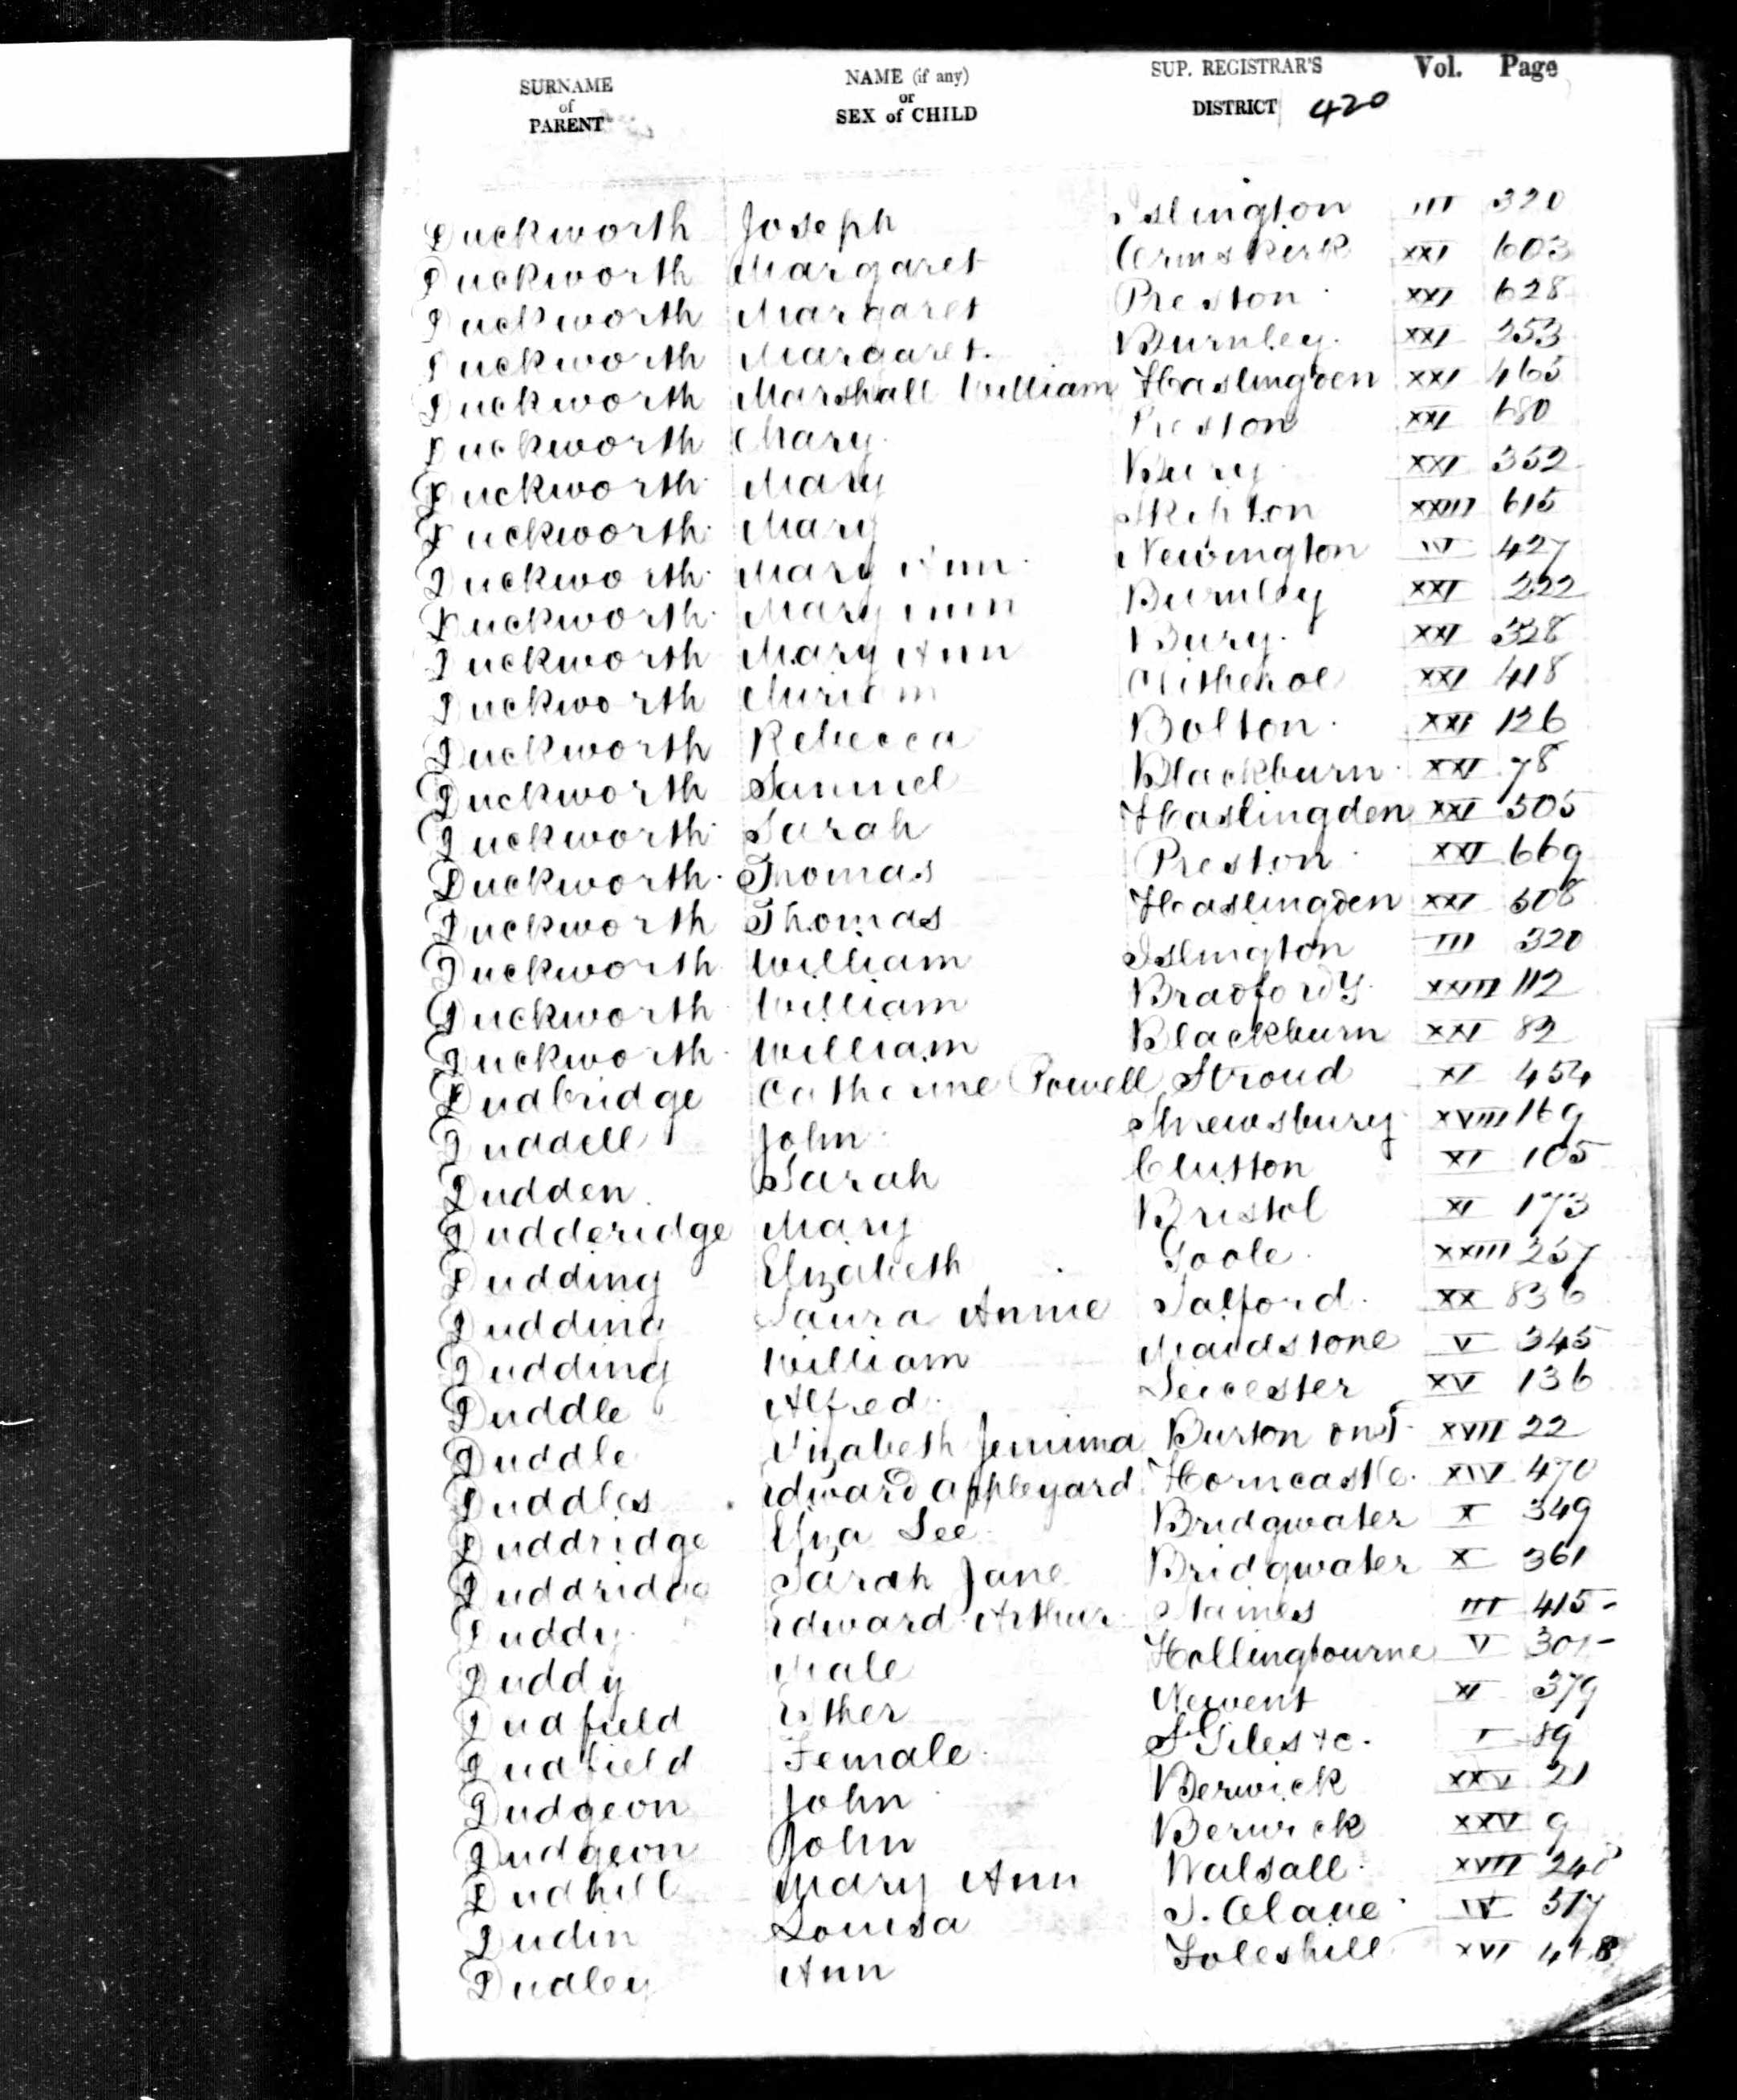 SURNAME of PARENT NAME (if any) or SEX of CHILD SUP. REGISTRAR'S DISTRICT 420 Vol. Page
Duckworth Joseph Islington III 320
Duckworth Margaret Ormskirk XXI 603
Duckworth Margaret Preston XXI 628
Duckworth Margaret Burnley XXI 253
Duckworth Marshall William Haslingden XXI 465
Duckworth Mary Preston XXI 680
Duckworth Mary Bury XXI 352
Duckworth Mary Skipton XXIII 615
Duckworth Mary Ann Newington IV 427
Duckworth Mary Ann Burnley XXI 222
Duckworth Mary Ann Bury XXI 328
Duckworth Miriam Clitheroe XXI 418
Duckworth Rebecca Bolton XXI 126
Duckworth Samuel Blackburn XXI 78
Duckworth Sarah Haslingden XXI 505
Duckworth Thomas Preston XXI 669
Duckworth Thomas Haslingden XXI 508
Duckworth William Islington III 320
Duckworth William Bradford Y XXIII 112
Duckworth William Blackburn XXI 82
Dudbridge Catherine Powell Stroud XI 454
Duddell John Shrewsbury XVIII 169
Dudden Sarah Clutton XI 105
Dudderidge Mary Bristol XI 173
Dudding Elizabeth Goole XXIII 257
Dudding Laura Annie Salford XX 836
Dudding William Maidstone V 345
Duddle Alfred Leicester XV 136
Duddle Elizabeth Jemima Burton on T XVII 22
Duddles Edward Appleyard Horncastle XIV 470
Duddridge Eliza Lee Bridgwater X 349
Duddridge Sarah Jane Bridgwater X 361
Duddy Edward Arthur Staines III 415
Duddy Male Hollingbourne V 301
Dudfield Esther Newent XI 379
Dudfield Female S Giles &c. I 89
Dudgeon John Berwick XXV 21
Dudgeon John Berwick XXV 9
Dudhill Mary Ann Walsall XVII 240
Dudin Louisa S. Olave IV 517
Dudley Ann Foleshill XVI